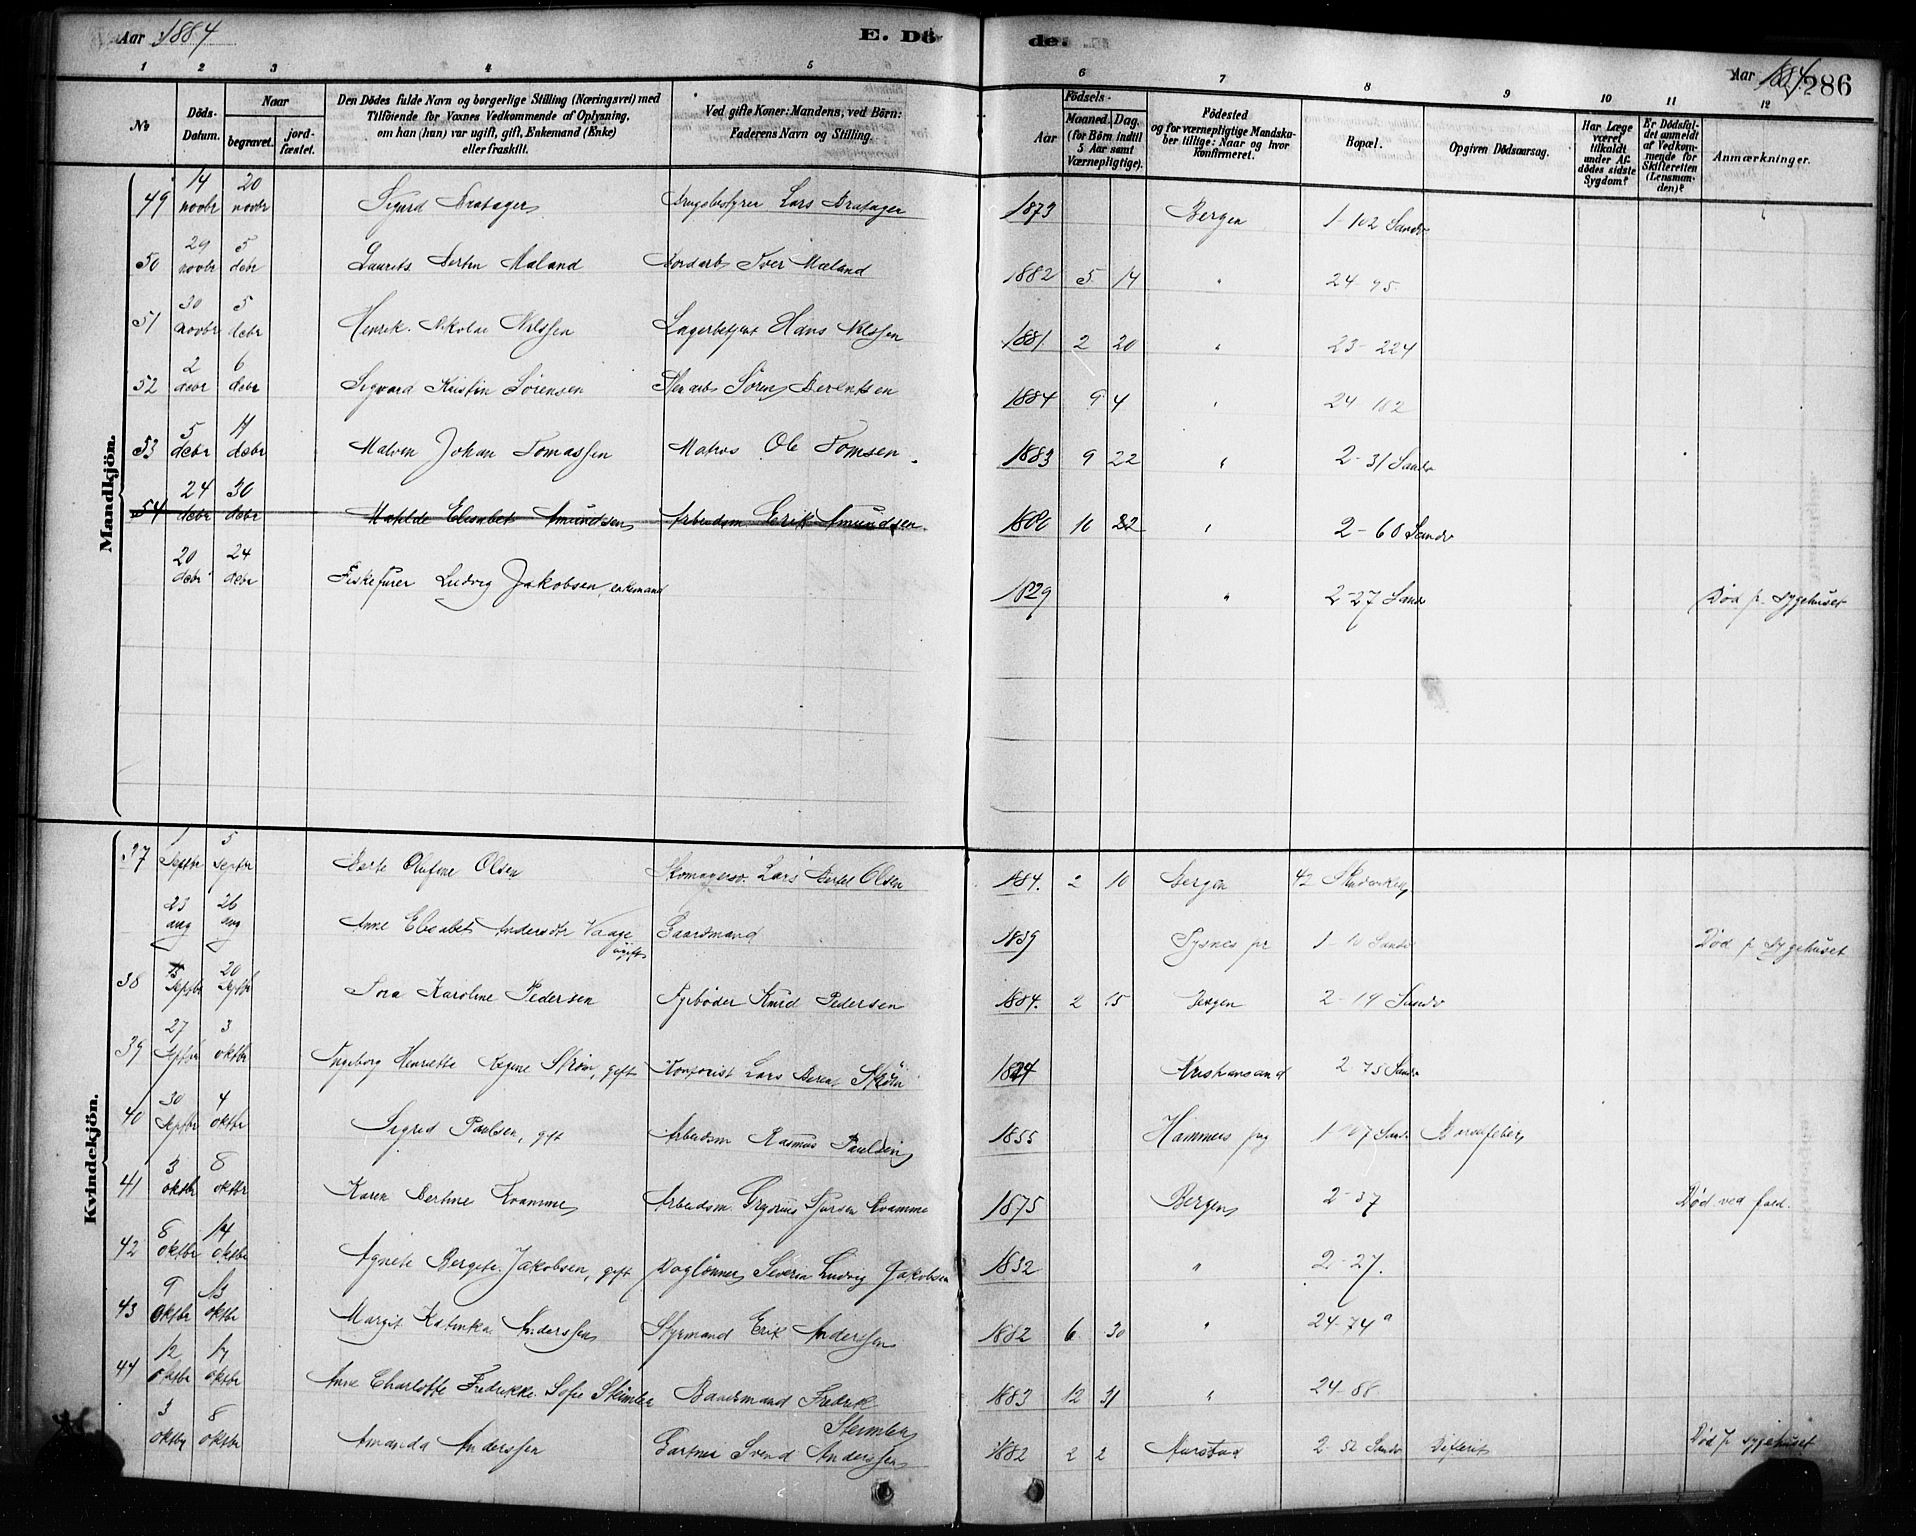 Aar 1884 E. Dö de. Aar 1884. 286
1 2 3 4 5 6 7 8 9 10 11 12
No Döds-Datum. Naar begravet. jordfæstet. Den Dödes fulde Navn og borgerlige Stilling (Næringsvei) med Tilföiende for Voxnes Vedkommende af Oplysning, om han (hun) var ugift, gift, Enkemand (Enke) eller fraskilt. Ved gifte Koner: Mandens, ved Börn: Faderens Navn og Stilling. Födsels- Aar Maaned. Dag. (for Börn indtil 5 Aar samt Værnepligtige). Födested og for værnepligtige Mandskaber tillige: Naar og hvor konfirmeret. Bopæl. Opgiven Dödsaarsag. Har Læge været tilkaldt under Afdödes sidste Sygdom? Er Dödsfaldet anmeldt af Vedkommende for Skifteretten (Lensmanden)? Anmærkninger.
Mandkjön.
49 14 novbr 20 novbr Sigurd Bratager Lars Bratager 1873 Bergen 1-102 Sandv
50 29 novbr 5 debr Laurits Bertin Maland Iver Mæland 1882 5 14 " 24-95.
51 30 novbr 5 debr Henrik Nikolai Nilssen Lagerbetjent Hans Nilssen 1881 2 20 " 23-224
52 2 debr 6 debr Sigvard Kristin Sörensen Sören Berentsen 1884 9 4 " 24 102
53 5 debr 11 debr Johan Tomassen Matros Ole Tomsen. 1883 9 22 " 2-31 Sandv
54 24 debr 30 debr Matilde Elisabet Amundsen Arbeidsm Erik Amundsen. 10 22 " 2-60 Sandv
20 debr 24 debr Ludvig Jakobsen, enkemand 1829 " 2-27 Sand Död p. Sygehuset
Kvindekjön.
37 1 Septbr 5 Septbr Olufine Olsen Lars Bertel Olsen 1884. 2 10 Bergen 42
23 aug 26 aug Anne Elisabet Andersdtr Vaage ugift Gaardmand 1839 Tysnes pr 1-10 Sandv Död p. Sygehuset
38 15 Septbr 20 Septbr Karoline Pedersen Fyrböder Knud Pedersen 1884. 2 15 Bergen 2-19 Sandv
39 27 Septbr 3 oktbr Ingeborg Henriette Regine Ström, gift Lars Berent Ström 1824 Kristiansand 2-75 Sandv
40 30 Septbr 4 oktbr Sigrid Paulsen, gift Arbeidsm Rasmus Paulsen 1855 Hammers pgj 1 107 Sandv Barselfeber
41 3 oktbr 8 oktbr Karen Bertine Kvamme Arbeidsm. Gregorius Sjursen Kvamme 1875 Bergen 2-37 Död ved fald.
42 8 oktbr 14 oktbr Agnete Bergete Jakobsen, gift Daglönner Severin Ludvig Jakobsen 1832 " 2-27.
43 9 oktbr 13 oktbr Margit Katinka Anderssen Styrmand Erik Anderssen 1882 6 30 " 24-74a
44 12 oktbr 17 oktbr Anne Charlotte Fredrikke Sofie Stemler Fredrik Stemler 1883 12 31 " 24-88
3 oktbr 8 oktbr Amanda Anderssen Gartner Svend Anderssen 1882 2 2 Aurstad 2-52 Sandv Difterit Död p. Sygehuset